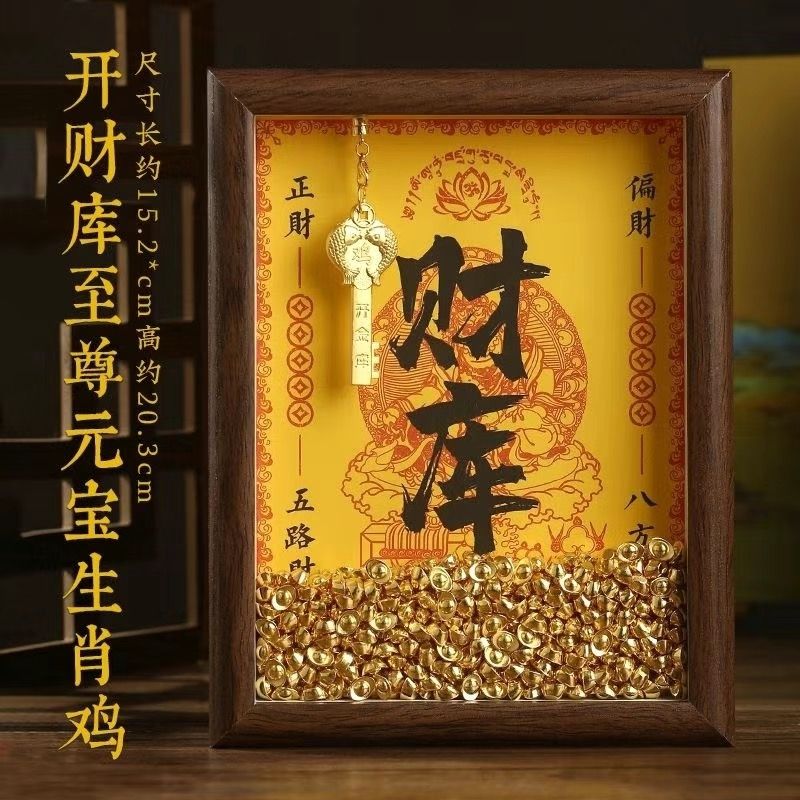 开财库至尊元宝生肖鸡
尺寸长约15.2*cm高约20.3cm
正財
偏財
财库
鸡
开金库
五路財
八方